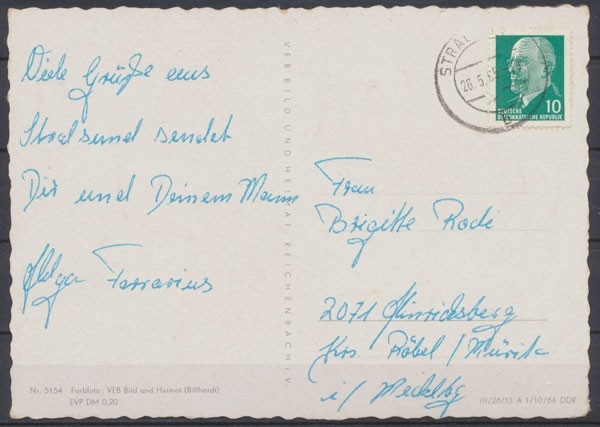 Viele Grüße aus
Stralsund sendet
Dir und Deinem Mann
Helga Ferrarius
Nr. 5154 Farbfoto: VEB Bild und Heimat (Billhardt)
EVP DM 0,20
VEB BILD UND HEIMAT REICHENBACH I. V.
STRAL
26.5.65
10
DEUTSCHE
DEMOKRATISCHE REPUBLIK
Frau
Brigitte Rodi
2071 Hinrichsberg
Krs. Röbel / Müritz
i / Mecklbg
III/26/13 A 1/10/64 DDR